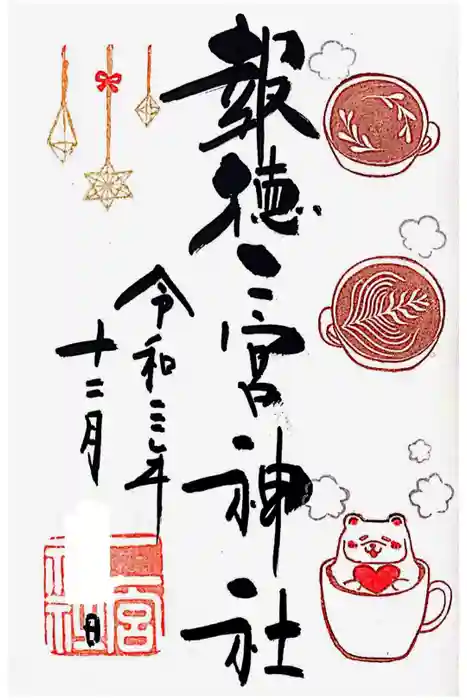 報徳二宮神社
令和三年
十二月
日
二宮
神社